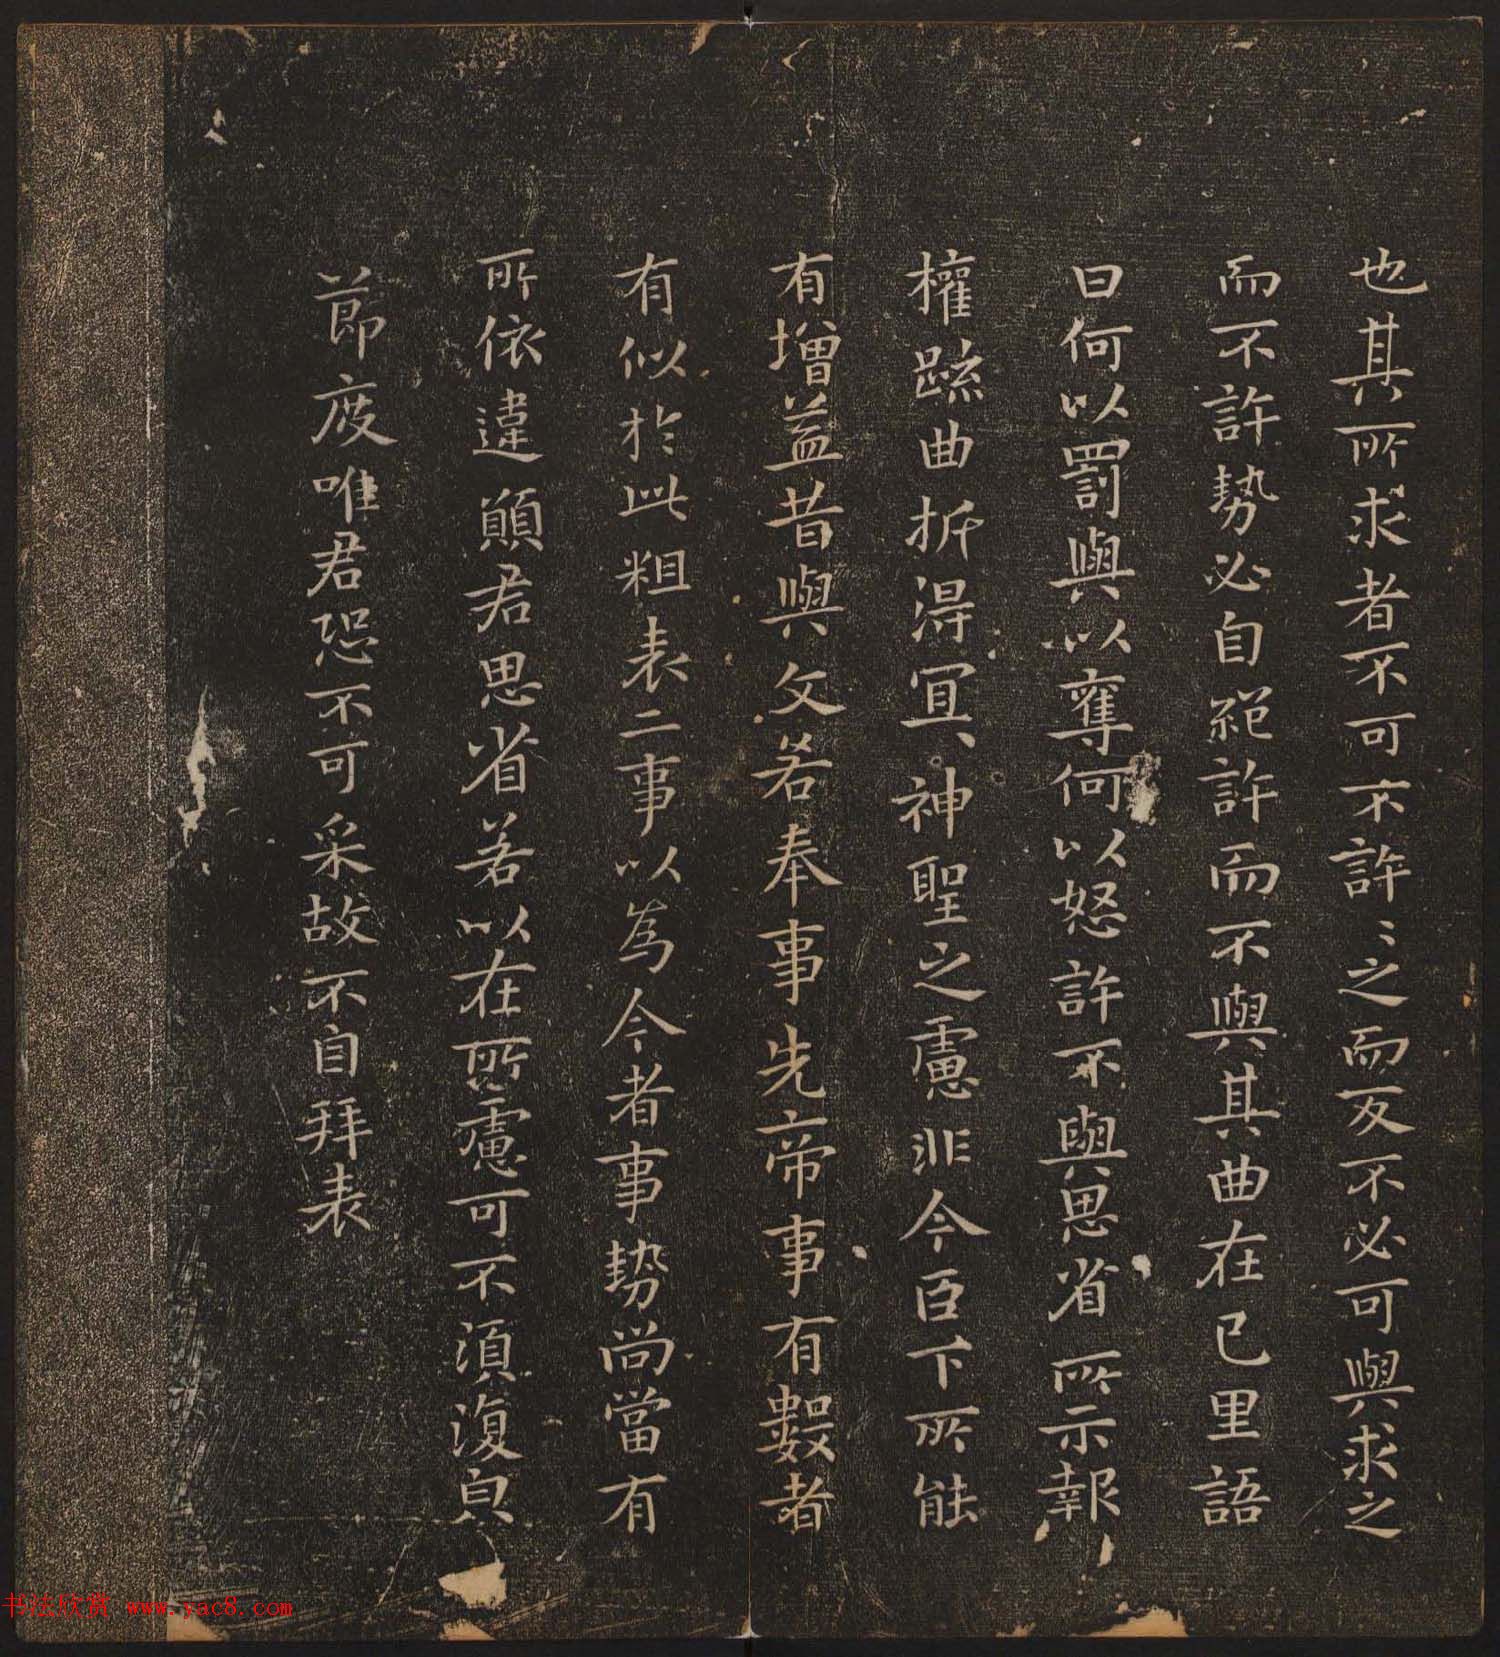 也其所求者不可不許〻之而反不必可與求之
而不許勢必自絕許而不與其曲在己里語
曰何以罰與以奪何以怒許不與思省所示報
權疏曲折得宜神聖之慮非今臣下所能
有增益昔與文若奉事先帝事有數者
有似於此粗表二事以為今者事勢尚當有
所依違願君思省若以在所慮可不須復皃
節度唯君恐不可采故不自拜表
书法欣赏 www.yac8.com